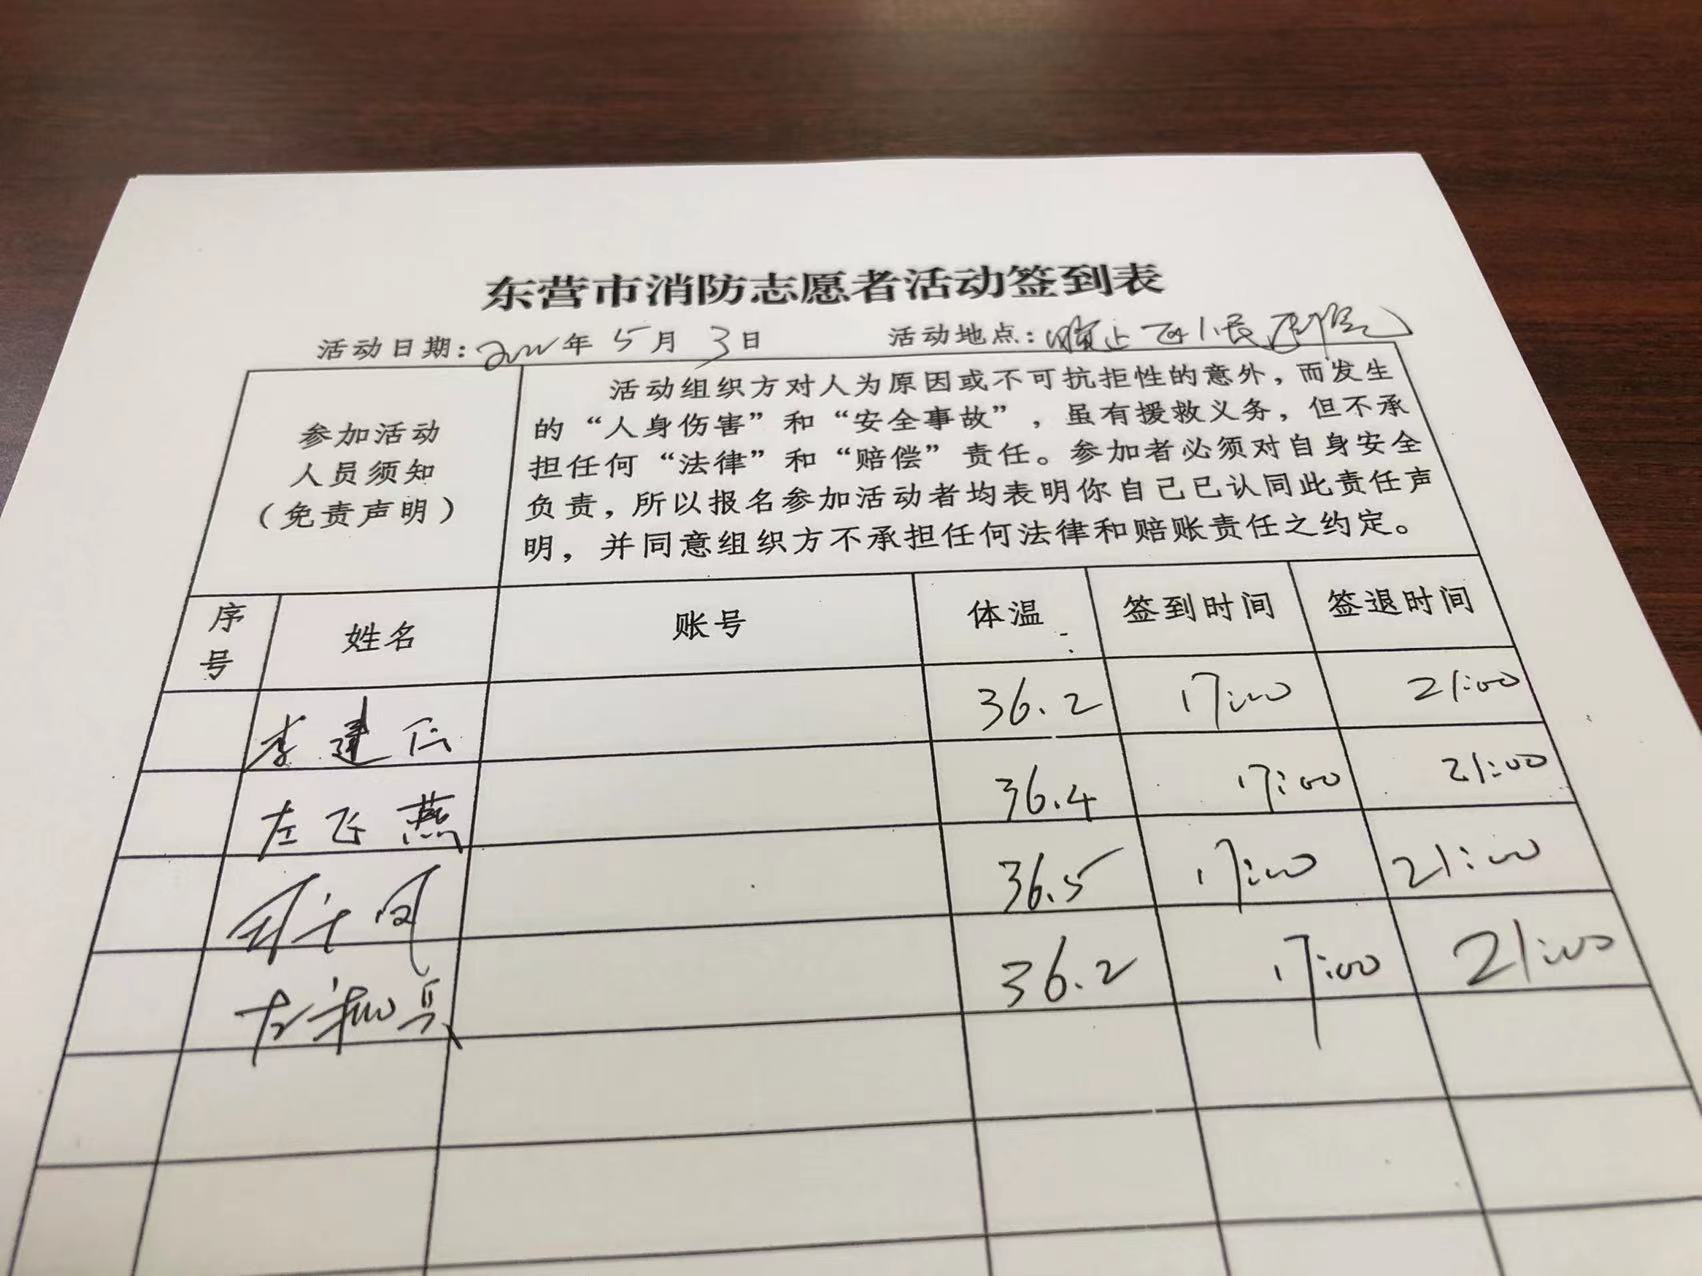 东营市消防志愿者活动签到表
活动日期：2022年5月3日 活动地点：人民医院
参加活动
人员须知
（免责声明）
活动组织方对人为原因或不可抗拒性的意外，而发生
的“人身伤害”和“安全事故”，虽有援救义务，但不承
担任何“法律”和“赔偿”责任。参加者必须对自身安全
负责，所以报名参加活动者均表明你自己已认同此责任声
明，并同意组织方不承担任何法律和赔账责任之约定。
序号 姓名 账号 体温 签到时间 签退时间
李建仁 36.2 17:00 21:00
左飞燕 36.4 17:00 21:00
36.5 17:00 21:00
36.2 17:00 21:00